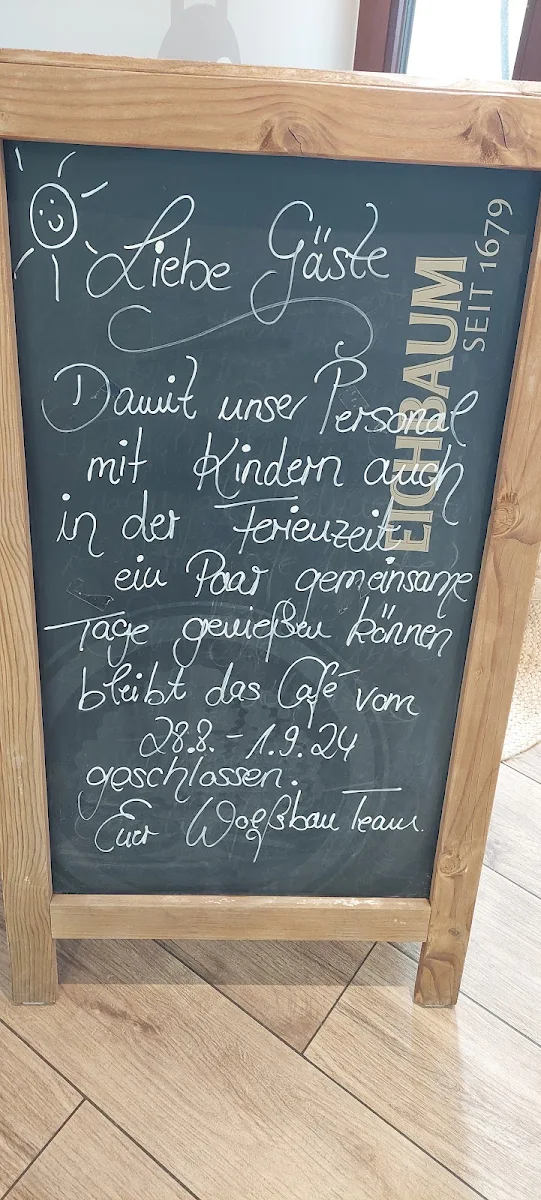 Liebe Gäste
EICHBAUM
SEIT 1679
Damit unser Personal
mit Kindern auch
in der Ferienzeit
ein Paar gemeinsame
Tage genießen können
bleibt das Café vom
28.8. - 1.9.24
geschlossen.
Euer Wolfsbau Team.